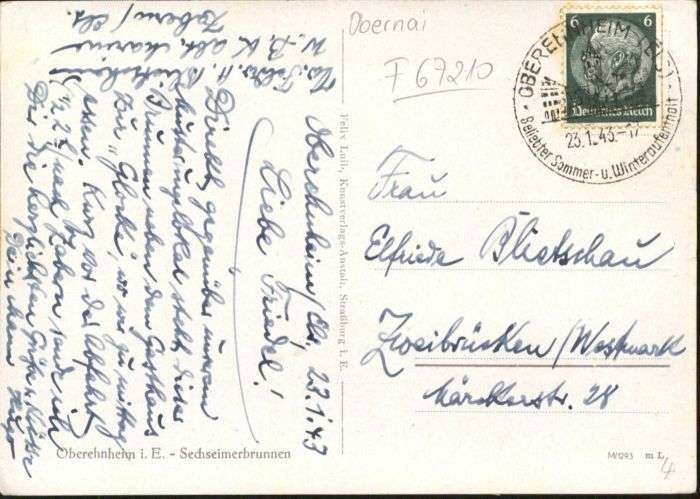 Obernai
F 67210
OBEREHNHEIM (ELS.)
Beliebter Sommer- u. Winteraufenthalt
23.1.43.-17
6 6
Deutsches Reich
W. B. K. abt. Marine
Zabern/Els.
Oberehnheim/Els, 23.1.43
Liebe Friedel!
Direkt gegenüber unserem
Musterungslokal steht dieser
Brunnen neben dem Gasthaus
Zur "Glocke", wo wir zu mittag
essen. Kurz vor der Abfahrt
nach Zabern sende ich
Dir die herzlichsten Grüße u. Küsse
Dein
Hugo
Felix Luib, Kunstverlags-Anstalt, Straßburg i. E.
Frau
Elfriede Blietschau
Zweibrücken/Westmark
str. 28
Oberehnheim i. E. - Sechseimerbrunnen
M/1293 m L
4